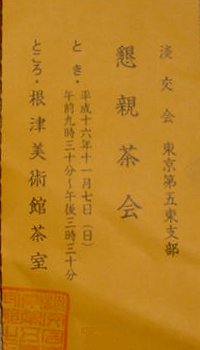 淡交会 東京第五東支部
懇親茶会
とき・平成十六年十一月七日（日）
午前九時三十分～午後三時三十分
ところ・根津美術館茶室